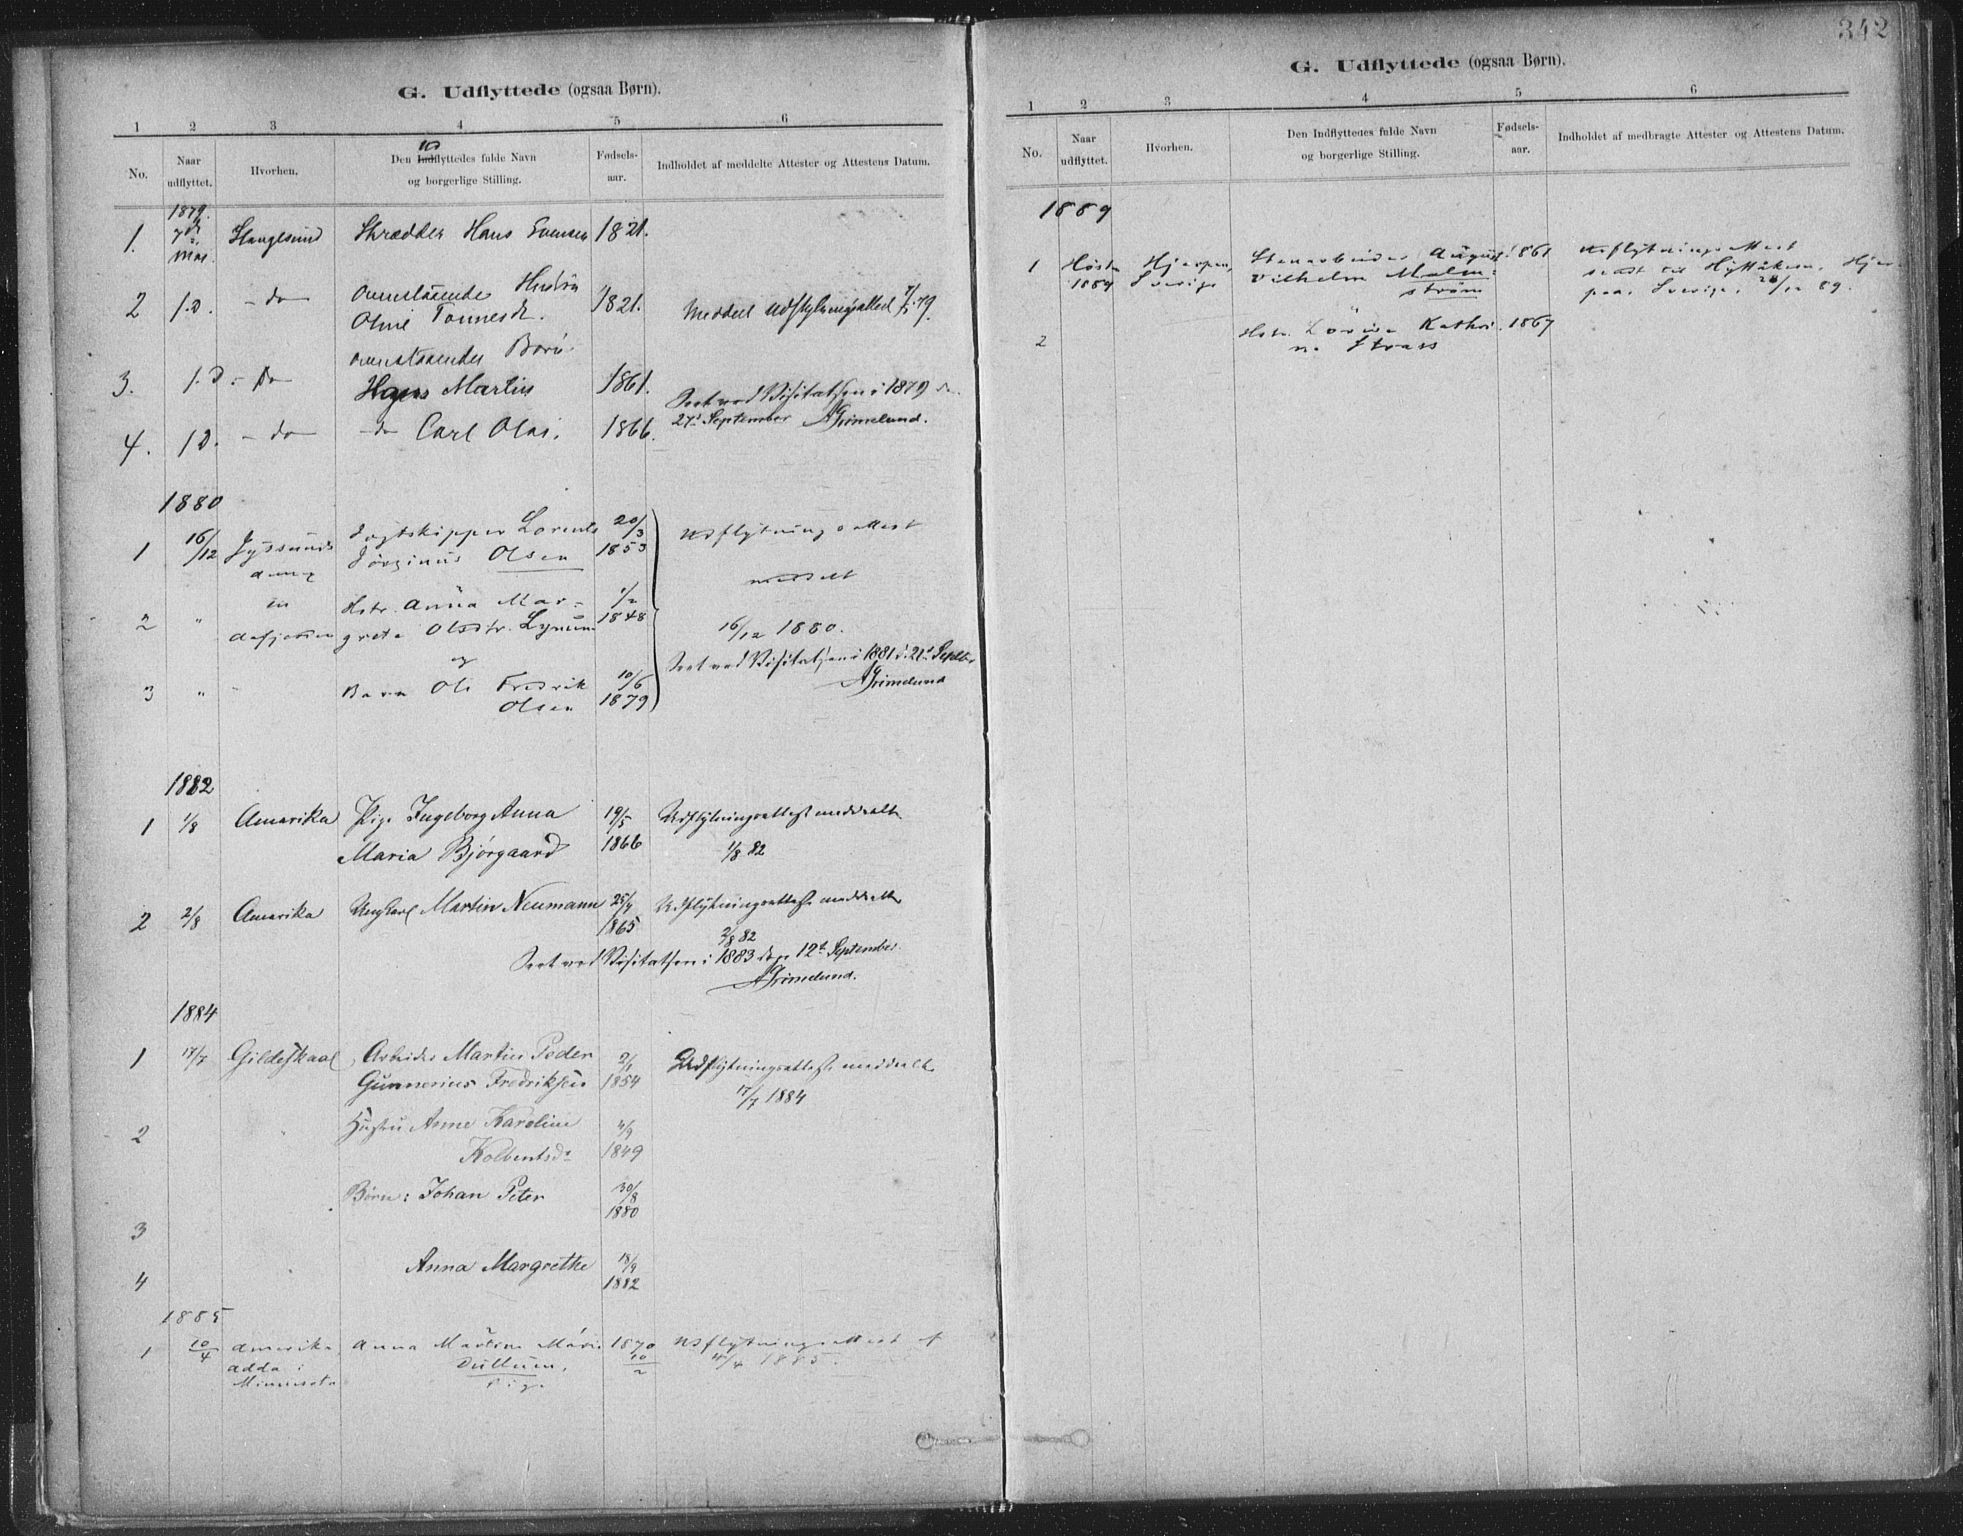 342
G. Udflyttede (ogsaa Børn).
1 2 3 4 5 6
No. Naar udflyttet. Hvorhen. Den Indflyttedes fulde Navn og borgerlige Stilling. Fødsels-aar. Indholdet af meddelte Attester og Attestens Datum.
1879.
1. 7de Mai Haugesund Skrædder Hans Evensen 1821.
ovenstaaendes Hustru
2 1.D. - do Oline Tønnesd. 1821. Meddelt Udflytningsattest 79.
ovenstaaendes Børn
3. 1.D - Do Hans Martin 1861.
Seet ved Visitatsen i 1879 d.
4. 1D. - do - do Carl Olai. 1866. 27d September AGrimelund.
1880
1 16/12 Jøssund Jagtskipper Lorents 20/3 Udflytningsattest
Jørginus Olsen 1853
meddelt
2 " Hstr. Anna Mar- 1/2
grete Olsdtr. Lynum 1848 16/12 1880.
og Seet ved Visitatsen i 1881 d. 21d Septbr
3 " " Barn Ole Fredrik 10/6 AGrimelund
Olsen 1879
1882
1 1/8 Amerika Pige Ingeborg Anna 19/5 Udflytningsattest meddealt
Maria Bjørgaard 1866 1/8 82
2 2/8 Amerika Ungkarl Martin Neumann 25/4 Udflytningsattest meddealt
1865 2/8 82
Seet ved Visitatsen i 1883 den 12t September
AGrimelund.
1884
1 17/7 Gildeskaal Arbeider Martin Peder 2/1 Udflytningsattest meddealt
Gunnerius Fredriksen 1854 17/7 1884
2 " Hustru Anne Karoline 4/9
Kolbentsdr 1849
Børn: Johan Peter 30/8
1880
3
Anna Margrethe 18/9
4 1882
1885
1 10/4 Amerika Anna Martine Marie 1870 Udflytningsattest af
adda i Dullum, 10/2 4/4 1885.
Minnesota Pige
G. Udflyttede (ogsaa Børn).
1 2 3 4 5 6
No. Naar udflyttet. Hvorhen. Den Indflyttedes fulde Navn og borgerlige Stilling. Fødsels-aar. Indholdet af medbragte Attester og Attestens Datum.
1889
1 Høst Hjerpen, Stenarbeider August 1861 Udflytningsattest
1889 Sverige Vilhelm Malm- sendt til Hjerpen
strøm Sverige. 89.
2 Hstr. Lovise Kathri- 1867
ne Strass